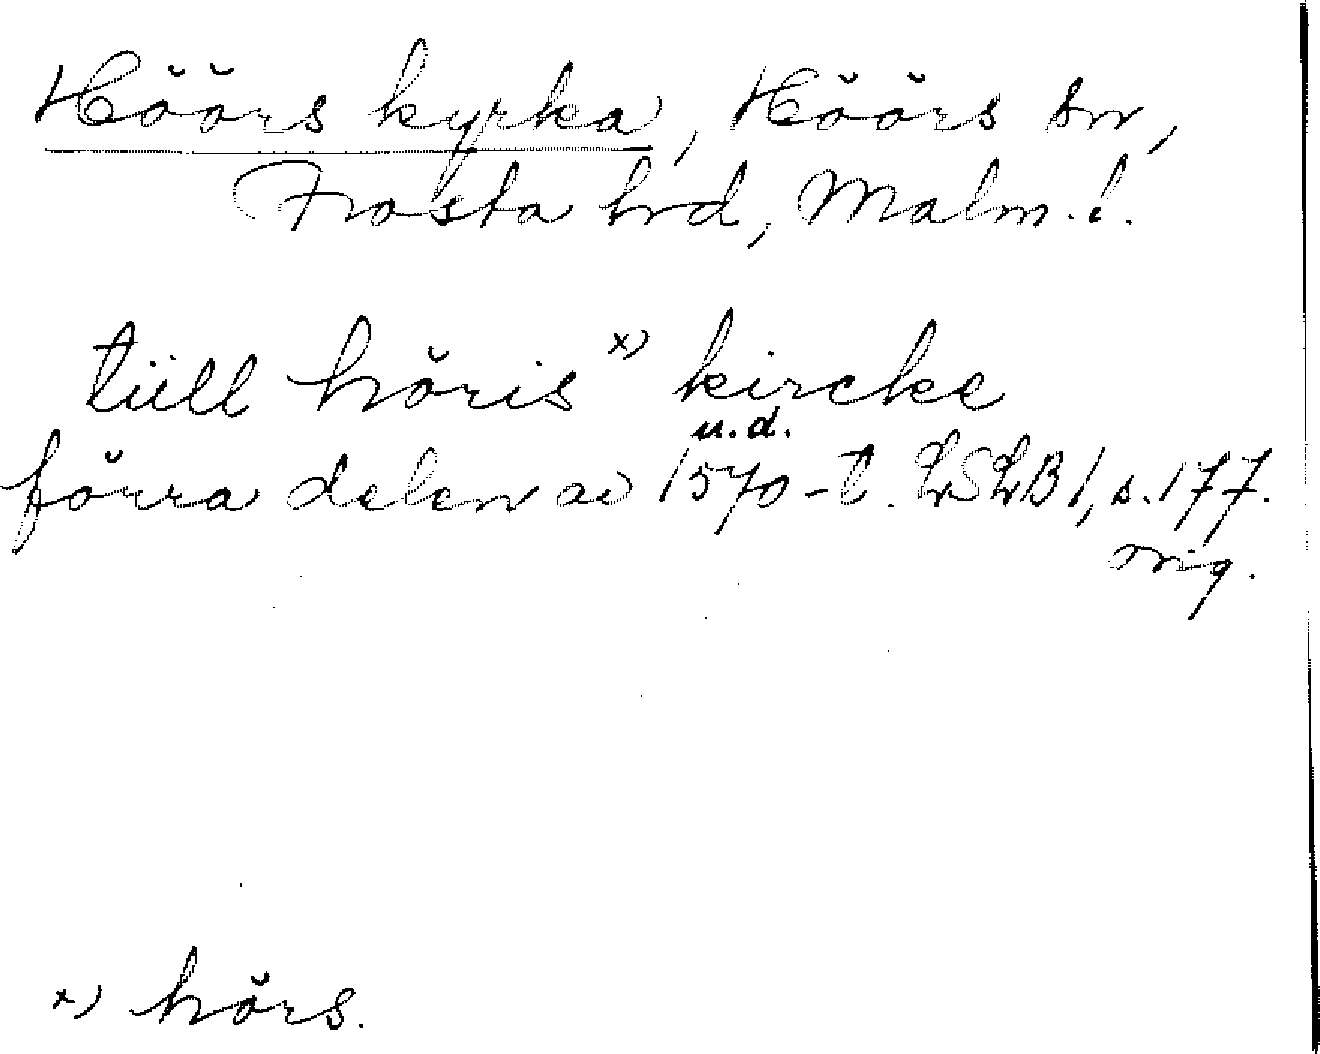 Höörs kyrka, Höörs sn,
Frosta hrd, Malm. l.
tiill höris x) kircke
u.d.
förra delen av 1570-t. LSLB 1, s. 177.
orig.
x) hörs.